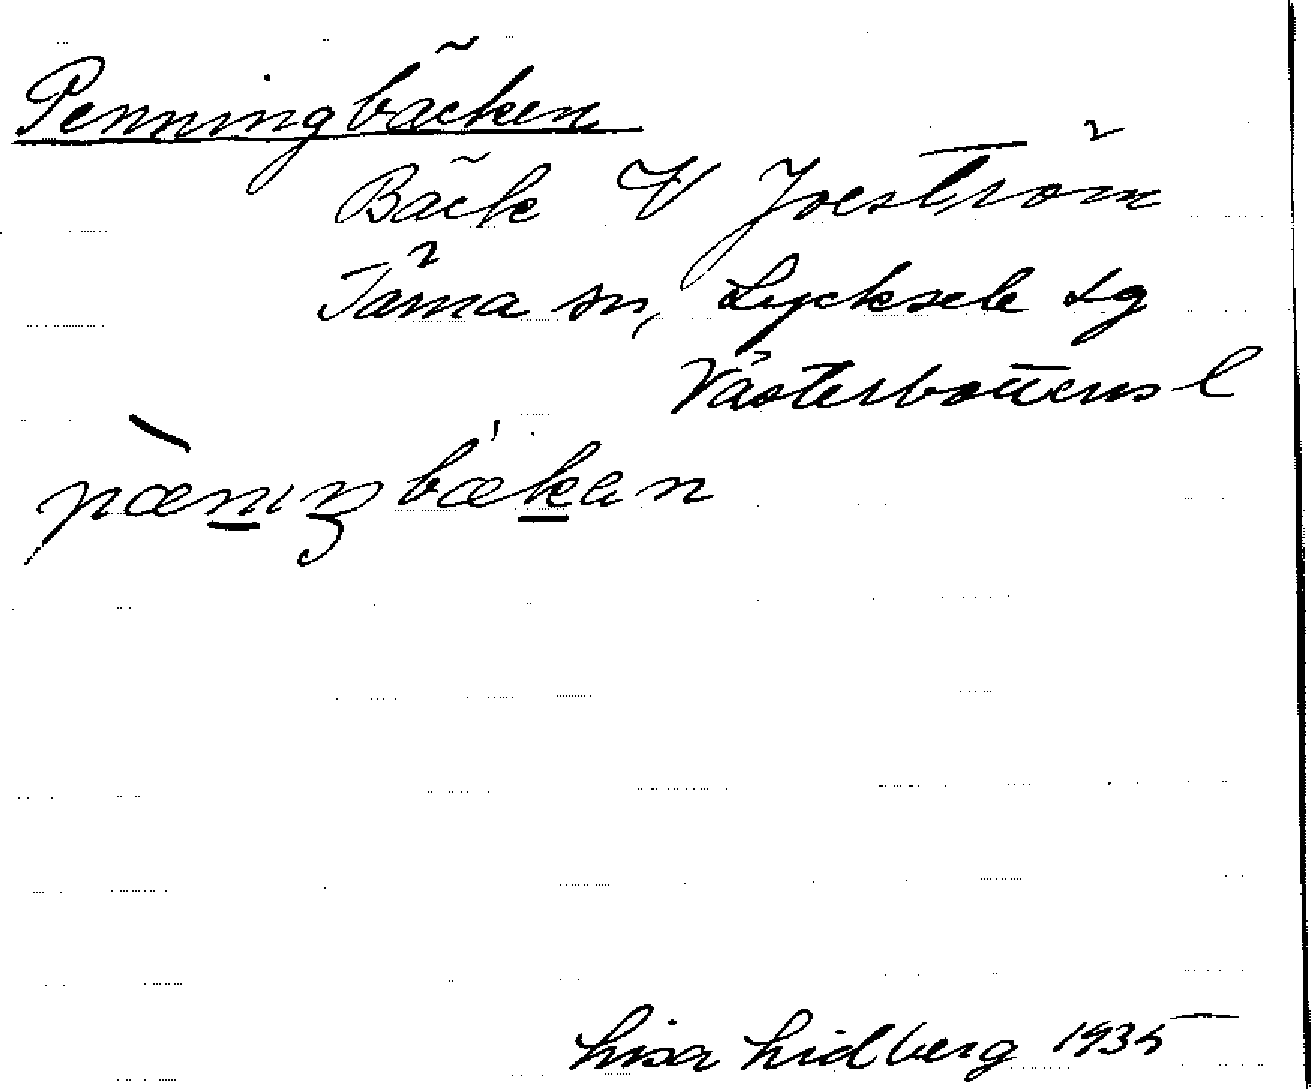 Penningbäcken
Bäck V Joeström
Tärna sn, Lycksele lg
Västerbottens l
pæniŋbækan
Lisa Lidberg 1935